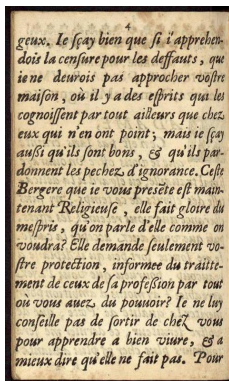 4
geux. Ie sçay bien que si i'apprehen-
dois la censure pour les deffauts, que
ie ne deurois pas approcher vostre
maison, où il y a des esprits qui les
cognoissent par tout ailleurs que chez
eux qui n'en ont point; mais ie sçay
aussi qu'ils sont bons, & qu'ils par-
donnent les pechez d'ignorance. Ceste
Bergere que ie vous presẽte est main-
tenant Religieuse, elle fait gloire du
mespris, qu'on parle d'elle comme on
voudra? Elle demande seulement vo-
stre protection, informee du traitte-
ment de ceux de sa profession par tout
où vous auez du pouuoir? Ie ne luy
conseille pas de sortir de chez vous
pour apprendre a bien viure, & a
mieux dire qu'elle ne fait pas. Pour